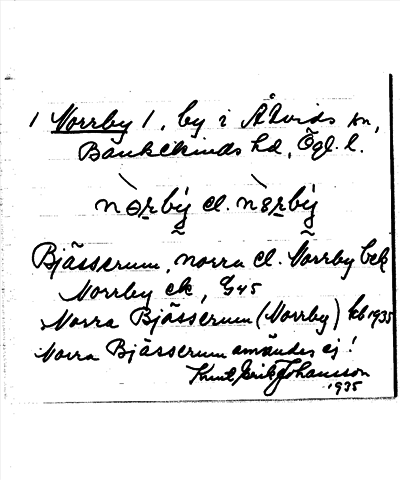 1 Norrby 1, by i Åtvids sn,
Bankekinds hd, Ögl. l.
nơrbý el. nɜrbý
Bjässerum, norra el. Norrby bek
Norrby ek, G 45
Norra Bjässerum (Norrby) kb 1935
Norra Bjässerum användes ej!
Knut Erik Johansson
1935